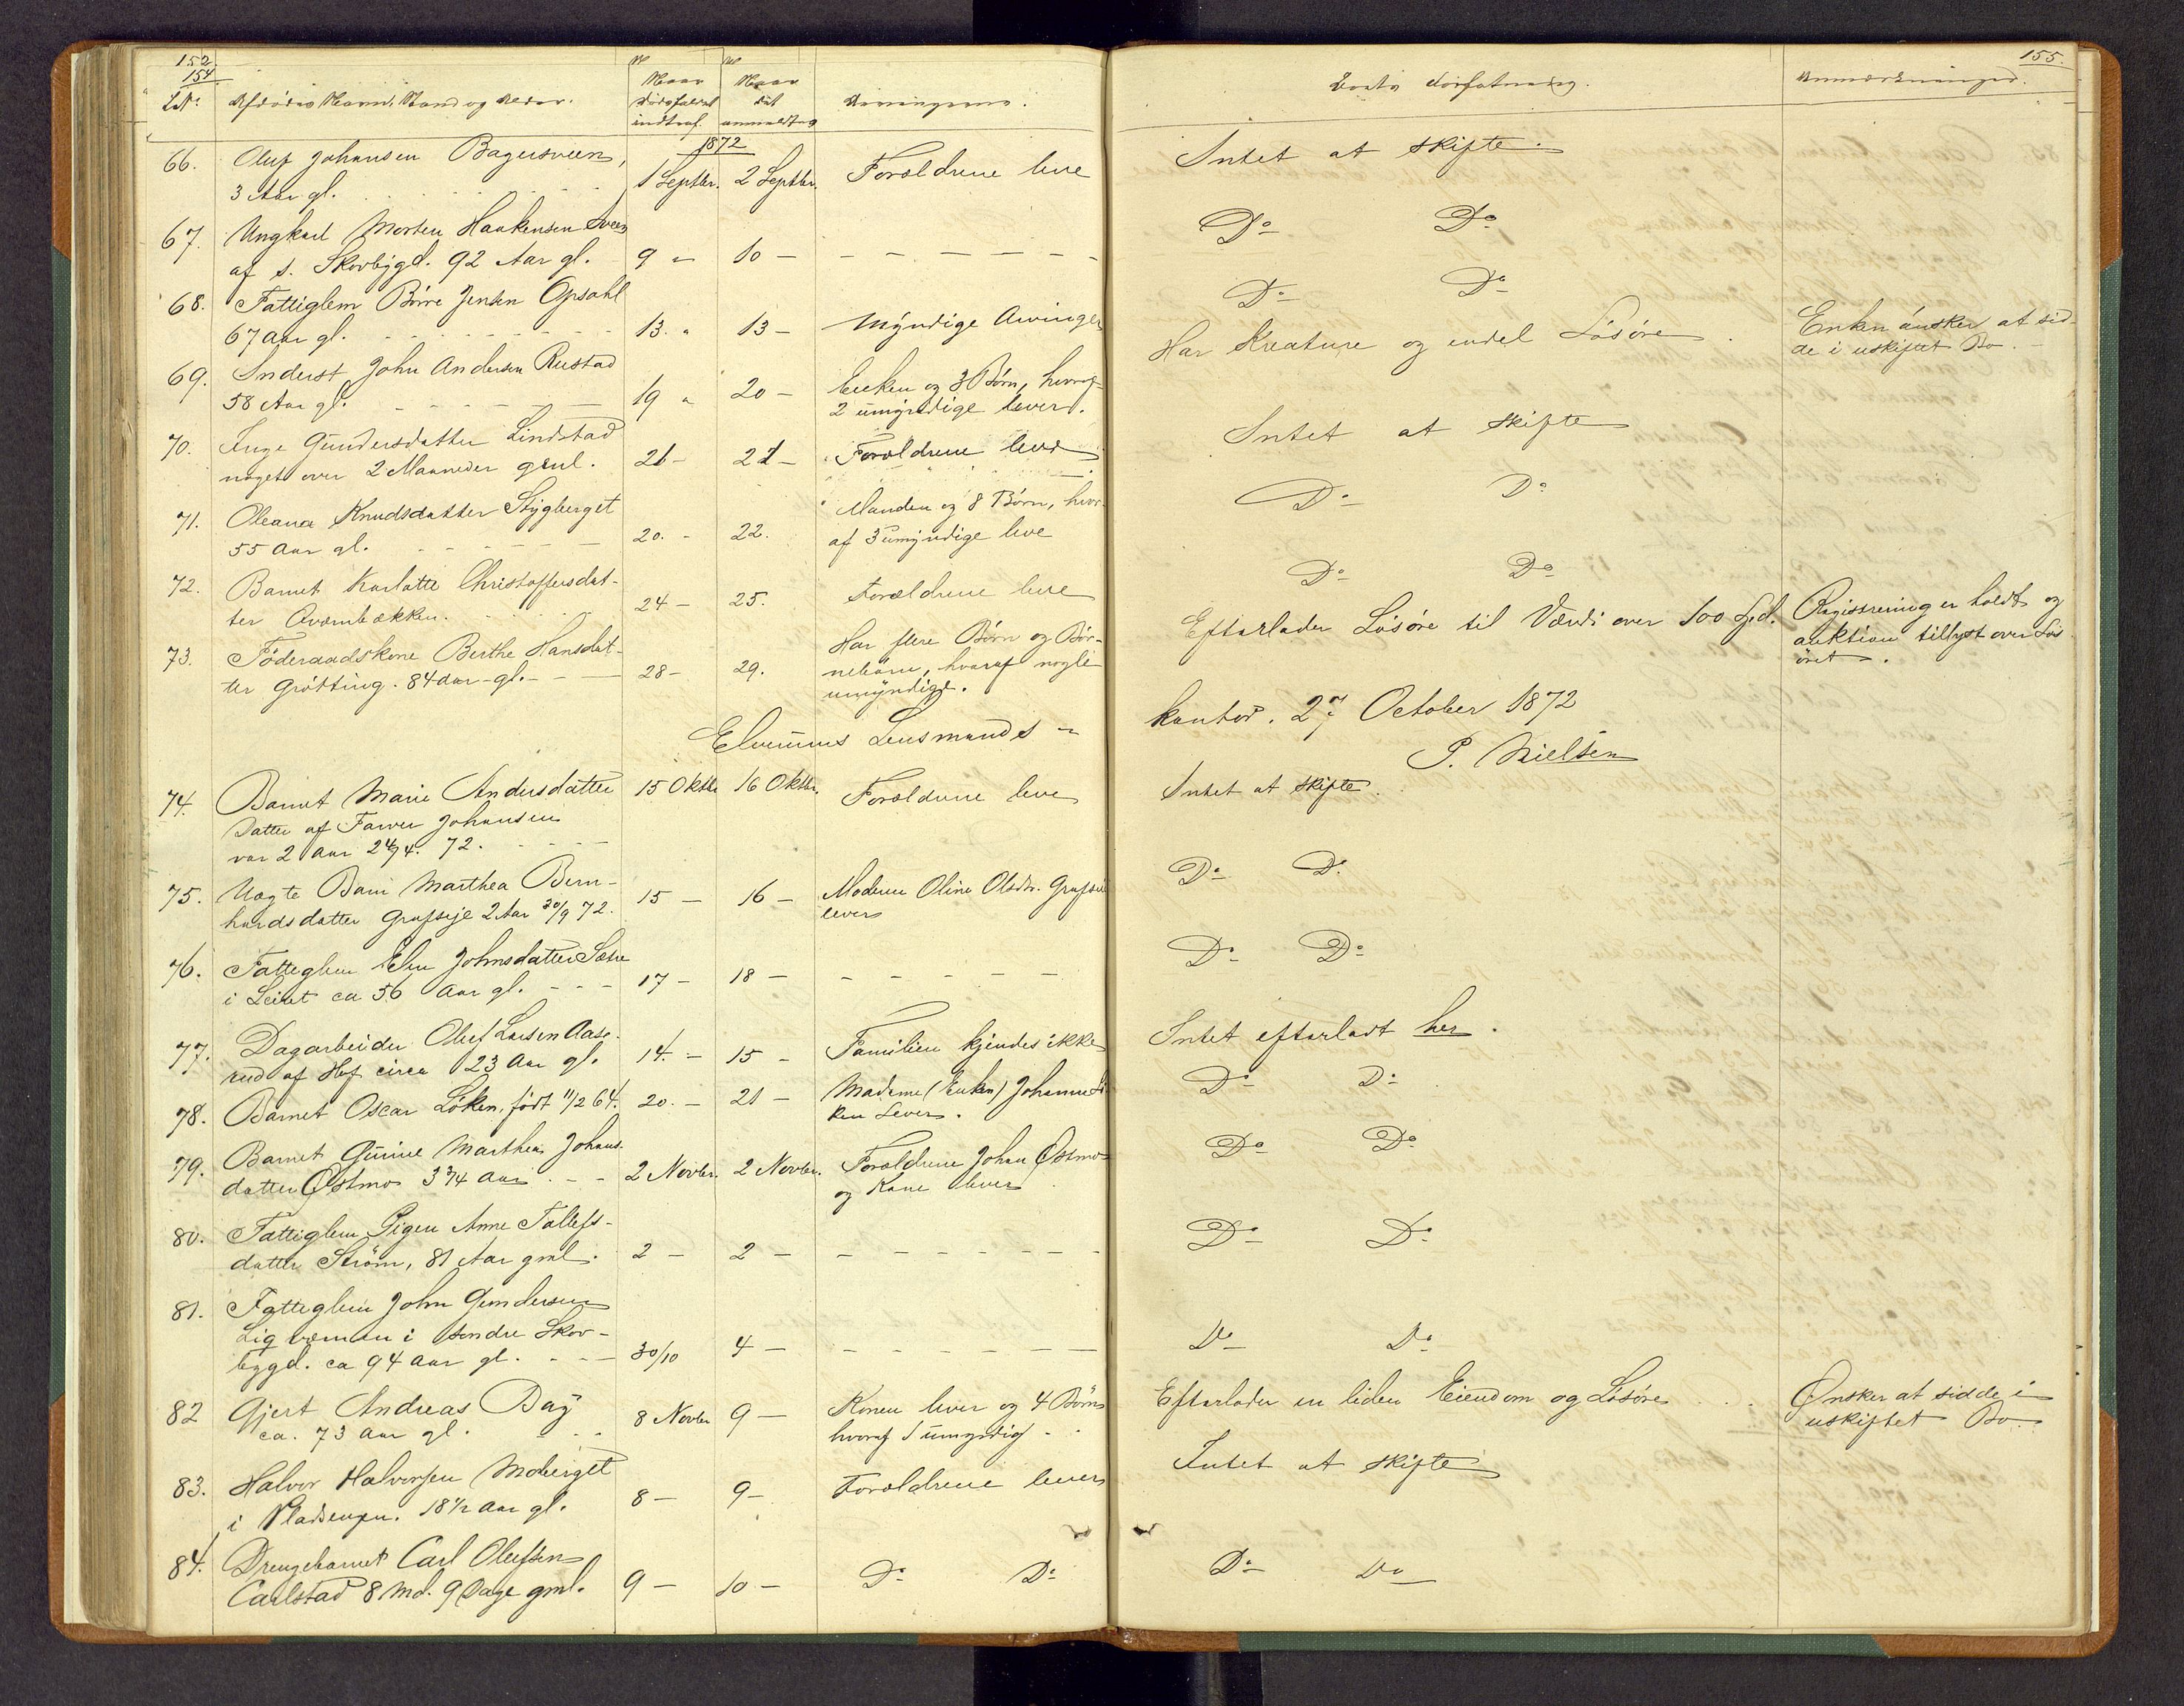 152.
154
LNo. Afdødes Navn, Stand og Alder.
Naar Dødsfaldet indtraf.
Naar det anmeldtes
Arvingerne.
1872
66. Oluf Johansen Bagersveen,
3 Aar gl. 1 Septbr. 2 Septbr. Forældrene leve
67. Ungkarl Morten Haakensen Sveen
af s. Skovbygd. 92 Aar gl. 9 " 10 —
68. Fattiglem Börre Jensen Opsahl
67 Aar gl. 13. " 13 — Myndige Arvinger
69. Inderst John Andersen Rustad
58 Aar gl. 19 " 20 — Enken og 3 Börn, hvoraf
2 umyndige lever.
70. Inge Gundersdatter Lindstad
noget over 2 Maaneder gml. 21 — 22 — Forældrene leve
71. Oleana Knudsdatter Stygberget Manden og 8 Börn, hvor-
55 Aar gl. 20. — 22. af 3 umyndige leve
72. Barnet Karlotte Christoffersdat-
ter Qvernbækken. 24 — 25. Forældrene leve
73. Föderaadskone Berthe Hansdat-
ter Grötting. 84 Aar gl. 28 — 29. Har flere Börn og Bör-
nebörn, hvoraf nogle
umyndige.
Elverums Lensmands
74. Barnet Marie Andersdatter 15 Oktbr 16 Oktbr. Forældrene leve
Datter af Farver Johansen
var 2 Aar 24/4. 72.
75. Uægte Barn Marthea Bern-
hardsdatter Grafseje 2 Aar 30/9 72. 15 — 16 — Moderen Oline Olsdtr. Grafseie
lever
76. Fattiglem Eline Johnsdatter Sætre
i Leiret ca 56 Aar gl. 17 — 18 —
77. Dagarbeider Oluf Larsen Aase-
rud af Hof circa 23 Aar gl. 14. — 15 — Familien kjendes ikke
78. Barnet Oscar Löken, födt 11/2 64. 20. — 21 — Madame (Enken) Johanne Lö-
ken Lever.
79. Barnet Gunine Marthea Johans-
datter Østmo 3 3/4 Aar 2 Novbr. 2 Novbr. Forældrene Johan Østmo
og Kone lever
80. Fattiglem Pigen Anne Tollefs-
datter Ström, 81 Aar gml. 2 — 2 —
81. Fattiglem John Gundersen
i søndre Skov-
bygd. ca 94 Aar gl. 30/10 4 —
82 Gjert Andreas Bay
ca. 73 Aar gl. 8 Novbr 9 — Konen lever og 4 Börn
hvoraf 1 umyndig
83. Halvor Halvorsen Moberget
i Pladsengen. 18 1/2 Aar gl. 8 — 9 — Forældrene lever
84. Drengebarnet Carl Olufsen
Carlstad 8 Md. 9 Dage gml. 9 — 10 — Do Do
155.
Boets Forfatning. Anmærkninger.
Intet at skifte
Do Do
Do Do
Har Kreature og endel Lösöre. Enken önsker at sid-
de i uskiftet Bo
Intet at skifte
Do Do
Do Do
Efterlader Lösöre til Værdi over 100 Spd. Registrering er holdt og
auktion tillyst over Lös
öret.
kontor. 27 October 1872
P. Nielsen
Intet at skifte.
Do Do
Do Do
Intet efterladt her.
Do Do
Do Do
Do Do
Do Do
Efterlader en liden Eiendom og Lösöre Ønsker at sidde i
uskiftet Bo
Intet at skifte
Do Do